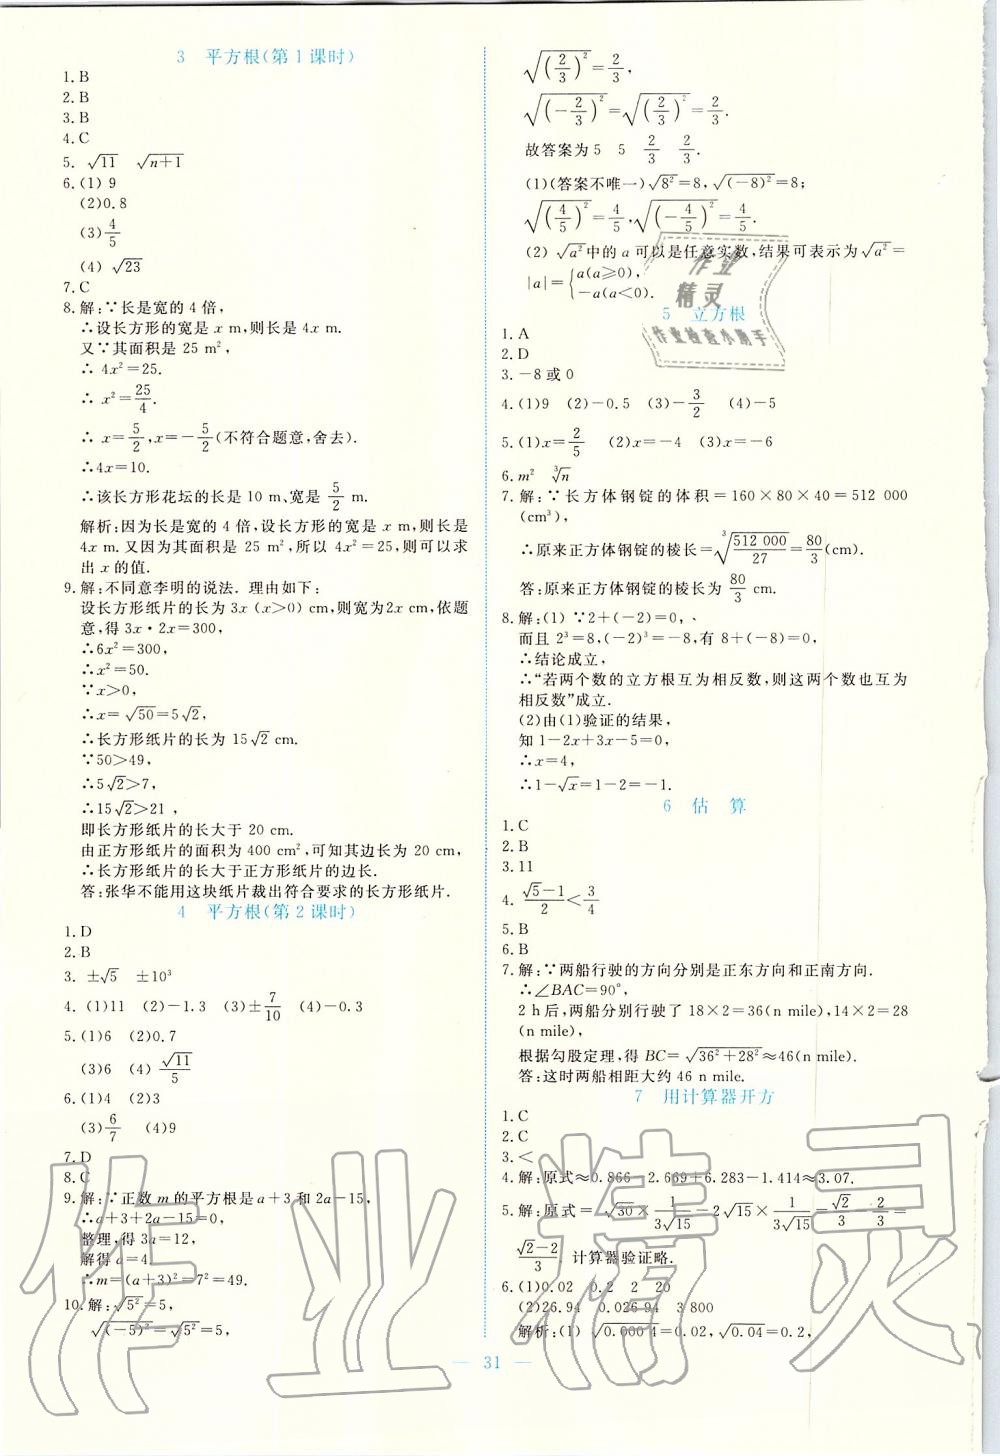 3 平方根(第1课时)
1. B
2. B
3. B
4. C
5. √11  √(n+1)
6. (1) 9
(2)0.8
(3)4/5
(4) √23
7. C
8. 解:∵长是宽的 4 倍,
∴设长方形的宽是 x m,则长是 4x m.
又∵其面积是 25 m²,
∴ 4x²=25.
∴ x²=25/4.
∴ x=5/2,x=-5/2(不符合题意,舍去).
∴4x=10.
∴该长方形花坛的长是 10 m、宽是 5/2 m.
解析:因为长是宽的 4 倍,设长方形的宽是 x m,则长是
4x m. 又因为其面积是 25 m²,所以 4x²=25,则可以求
出 x 的值.
9. 解:不同意李明的说法. 理由如下:
设长方形纸片的长为 3x (x>0) cm,则宽为2x cm,依题
意,得 3x·2x=300,
∴6x²=300,
∴x²=50.
∵x>0,
∴x=√50=5√2,
∴长方形纸片的长为 15√2 cm.
∵50>49,
∴5√2>7,
∴15√2>21 ,
即长方形纸片的长大于 20 cm.
由正方形纸片的面积为 400 cm²,可知其边长为 20 cm,
∴长方形纸片的长大于正方形纸片的边长.
答:张华不能用这块纸片裁出符合要求的长方形纸片.
4 平方根(第2课时)
1. D
2. B
3. ±√5  ±10³
4. (1)11 (2)-1.3 (3)±7/10 (4)-0.3
5. (1)6 (2)0.7
(3)6 (4) √11/5
6. (1)4 (2)3
(3)6/7 (4)9
7. D
8. C
9. 解:∵正数 m 的平方根是 a+3 和 2a-15,
∴a+3+2a-15=0,
整理,得 3a=12,
解得 a=4.
∴m=(a+3)²=7²=49.
10. 解:√(5²)=5,
√((-5)²)=√(5²)=5,
√((2/3)²)=2/3,
√((-2/3)²)=√((2/3)²)=2/3.
故答案为 5 5 2/3 2/3.
(1)(答案不唯一)√(8²)=8,√((-8)²)=8;
√((4/5)²)=4/5,√((-4/5)²)=4/5.
(2) √(a²)中的 a 可以是任意实数,结果可表示为√(a²)=
|a|={a(a≥0),
-a(a<0).
作业
精灵
作业检查小助手
5 立方根
1. A
2. D
3. -8 或 0
4. (1)9 (2)-0.5 (3)-3/2 (4)-5
5. (1)x=2/5 (2)x=-4 (3)x=-6
6. m² ³√n
7. 解:∵长方体钢锭的体积=160×80×40=512 000
(cm³),
∴原来正方体钢锭的棱长=³√(512 000/27)=80/3(cm).
答:原来正方体钢锭的棱长为 80/3 cm.
8. 解:(1) ∵2+(-2)=0,
而且 2³=8,(-2)³=-8,有 8+(-8)=0,
∴结论成立,
∴“若两个数的立方根互为相反数,则这两个数也互为
相反数”成立.
(2)由(1)验证的结果,
知 1-2x+3x-5=0,
∴x=4,
∴1-√x=1-2=-1.
6 估 算
1. C
2. B
3. 11
4. (√5-1)/2<3/4
5. B
6. B
7. 解:∵两船行驶的方向分别是正东方向和正南方向.
∴∠BAC=90°,
2 h后,两船分别行驶了 18×2=36(n mile),14×2=28
(n mile),
根据勾股定理,得 BC=√(36²+28²)≈46(n mile).
答:这时两船相距大约 46 n mile.
7 用计算器开方
1. C
2. C
3. <
4. 解:原式≈0.866-2.669+6.283-1.414≈3.07.
5. 解:原式=√30×1/(3√15)-2√15×1/(3√15)=√2/3-2/3=
(√2-2)/3. 计算器验证略.
6. (1)0.02 0.2 2 20
(2)26.94 0.026 94 3 800
解析:(1) √0.000 4=0.02,√0.04=0.2,
作业精灵
— 31 —